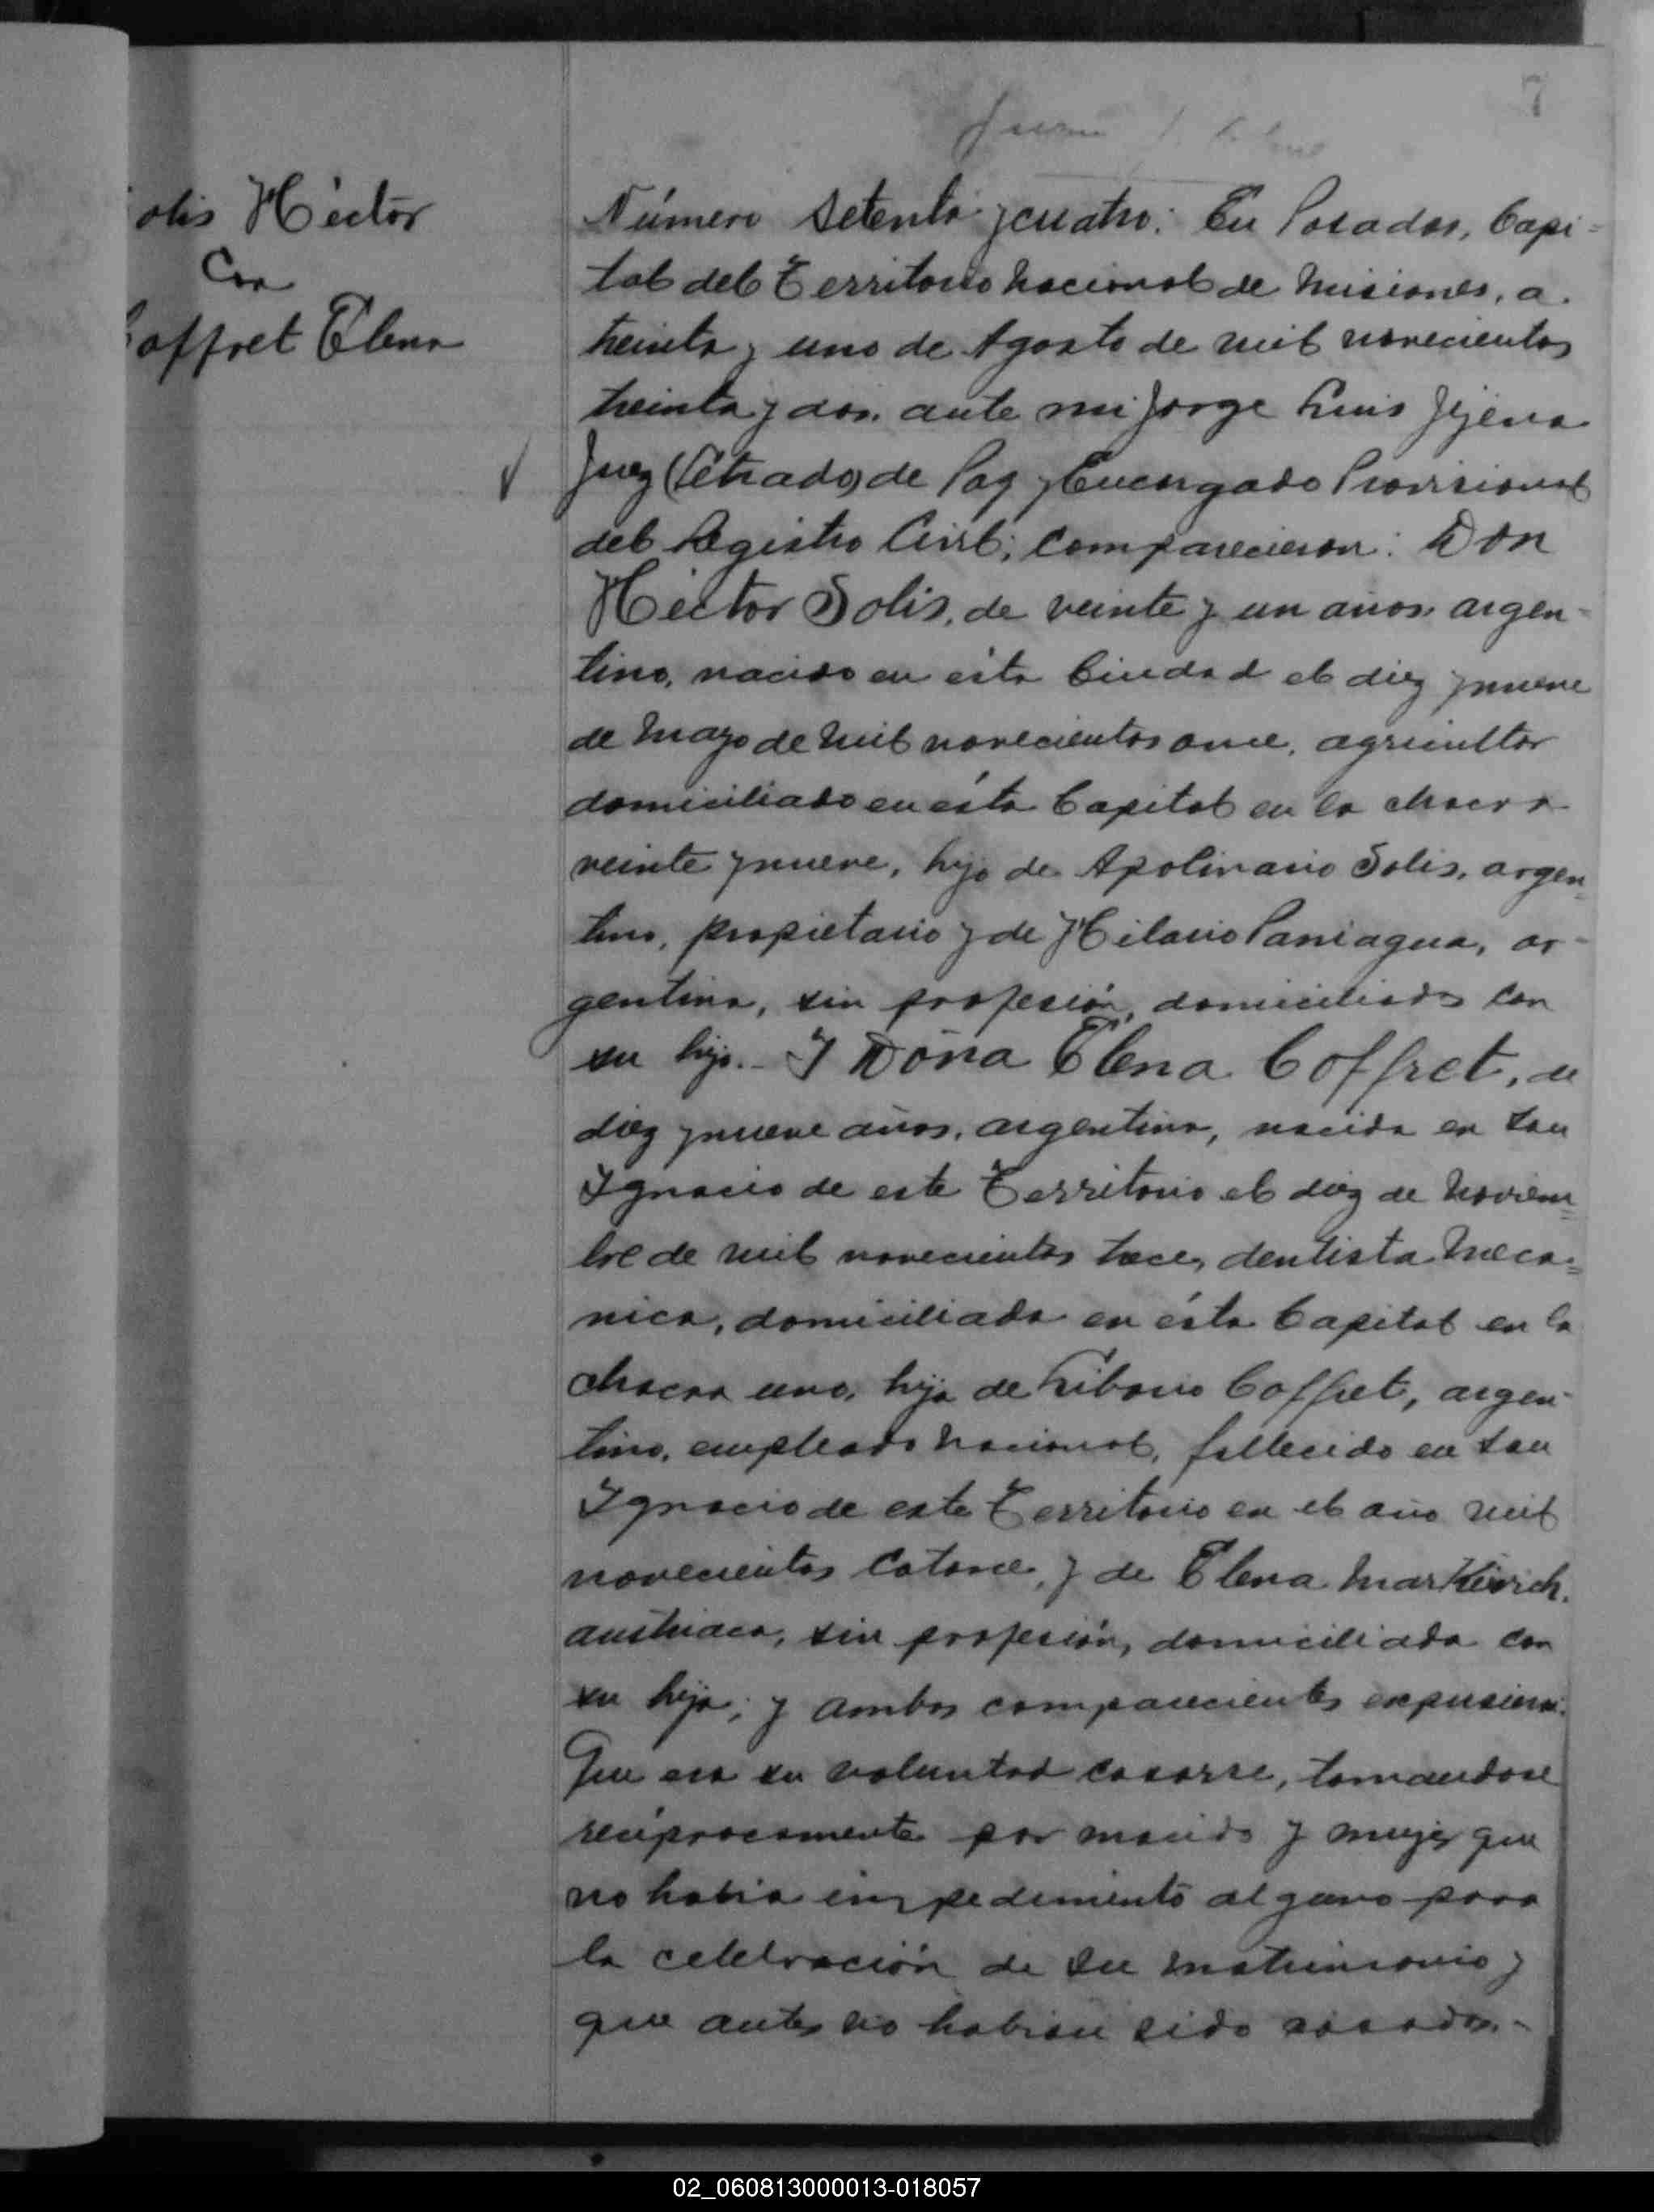 7
olis Héctor
Con
offret Elena
Número setenta y cuatro: En Posadas, Capi=
tal del Territorio Nacional de Misiones, a
treinta y uno de Agosto de mil novecientos
treinta y dos, ante mi Jorge Luis Jijena
Juez (Letrado) de Paz y Encargado Provisional
del Registro Civil; comparecieron: Don
Héctor Solis, de veinte y un años, argen-
tino, nacido en ésta Ciudad el diez y nueve
de Mayo de mil novecientos once, agricultor
domiciliado en ésta Capital en la chacra
veinte y nueve, hijo de Apolinario Solis, argen=
tino, propietario y de Hilaria Paniagua, ar-
gentina, sin profesión, domiciliados con
su hijo.- Y Doña Elena Coffret, de
diez y nueve años, argentina, nacida en San
Ignacio de este Territorio el diez de Noviem=
bre de mil novecientos trece, dentista Meca=
nica, domiciliada en ésta Capital en la
chacra uno, hija de Liborio Coffret, argen-
tino, empleado Nacional, fallecido en San
Ignacio de este Territorio en el año mil
novecientos catorce, y de Elena Markievich,
austriaca, sin profesión, domiciliada con
su hija; y ambos comparecientes expusieron:
Que era su voluntad casarse, tomandose
reciprocamente por marido y mujer que
no habia impedimento alguno para
la celebración de su matrimonio y
que antes no habian sido casados.-
02_060813000013-018057